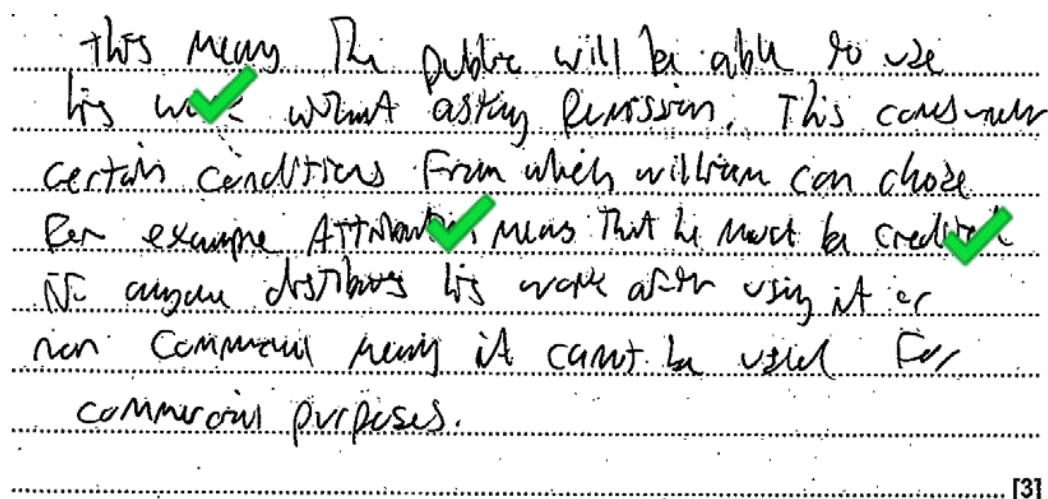 this means The public will be able to use
his work without asking permission. This comes under
certain conditions From which william can chose
For example Attribution means That he must be credited
if anyone distributes his work after using it or
non Commercial meaning it cannot be used For
commercial purposes.
[3]